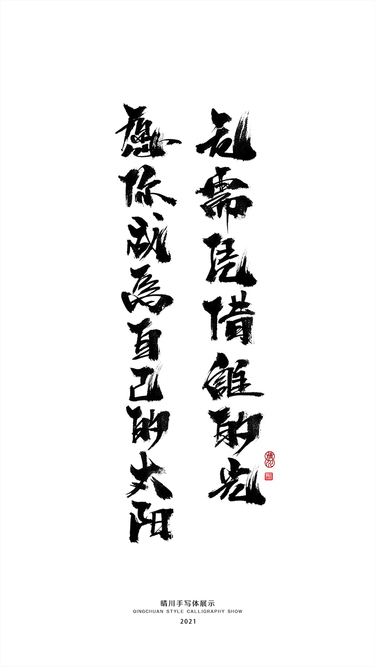 愿你成為自己的太阳
无需凭借誰的光
晴川手写体展示
QINGCHUAN STYLE CALLIGRAPHY SHOW
2021